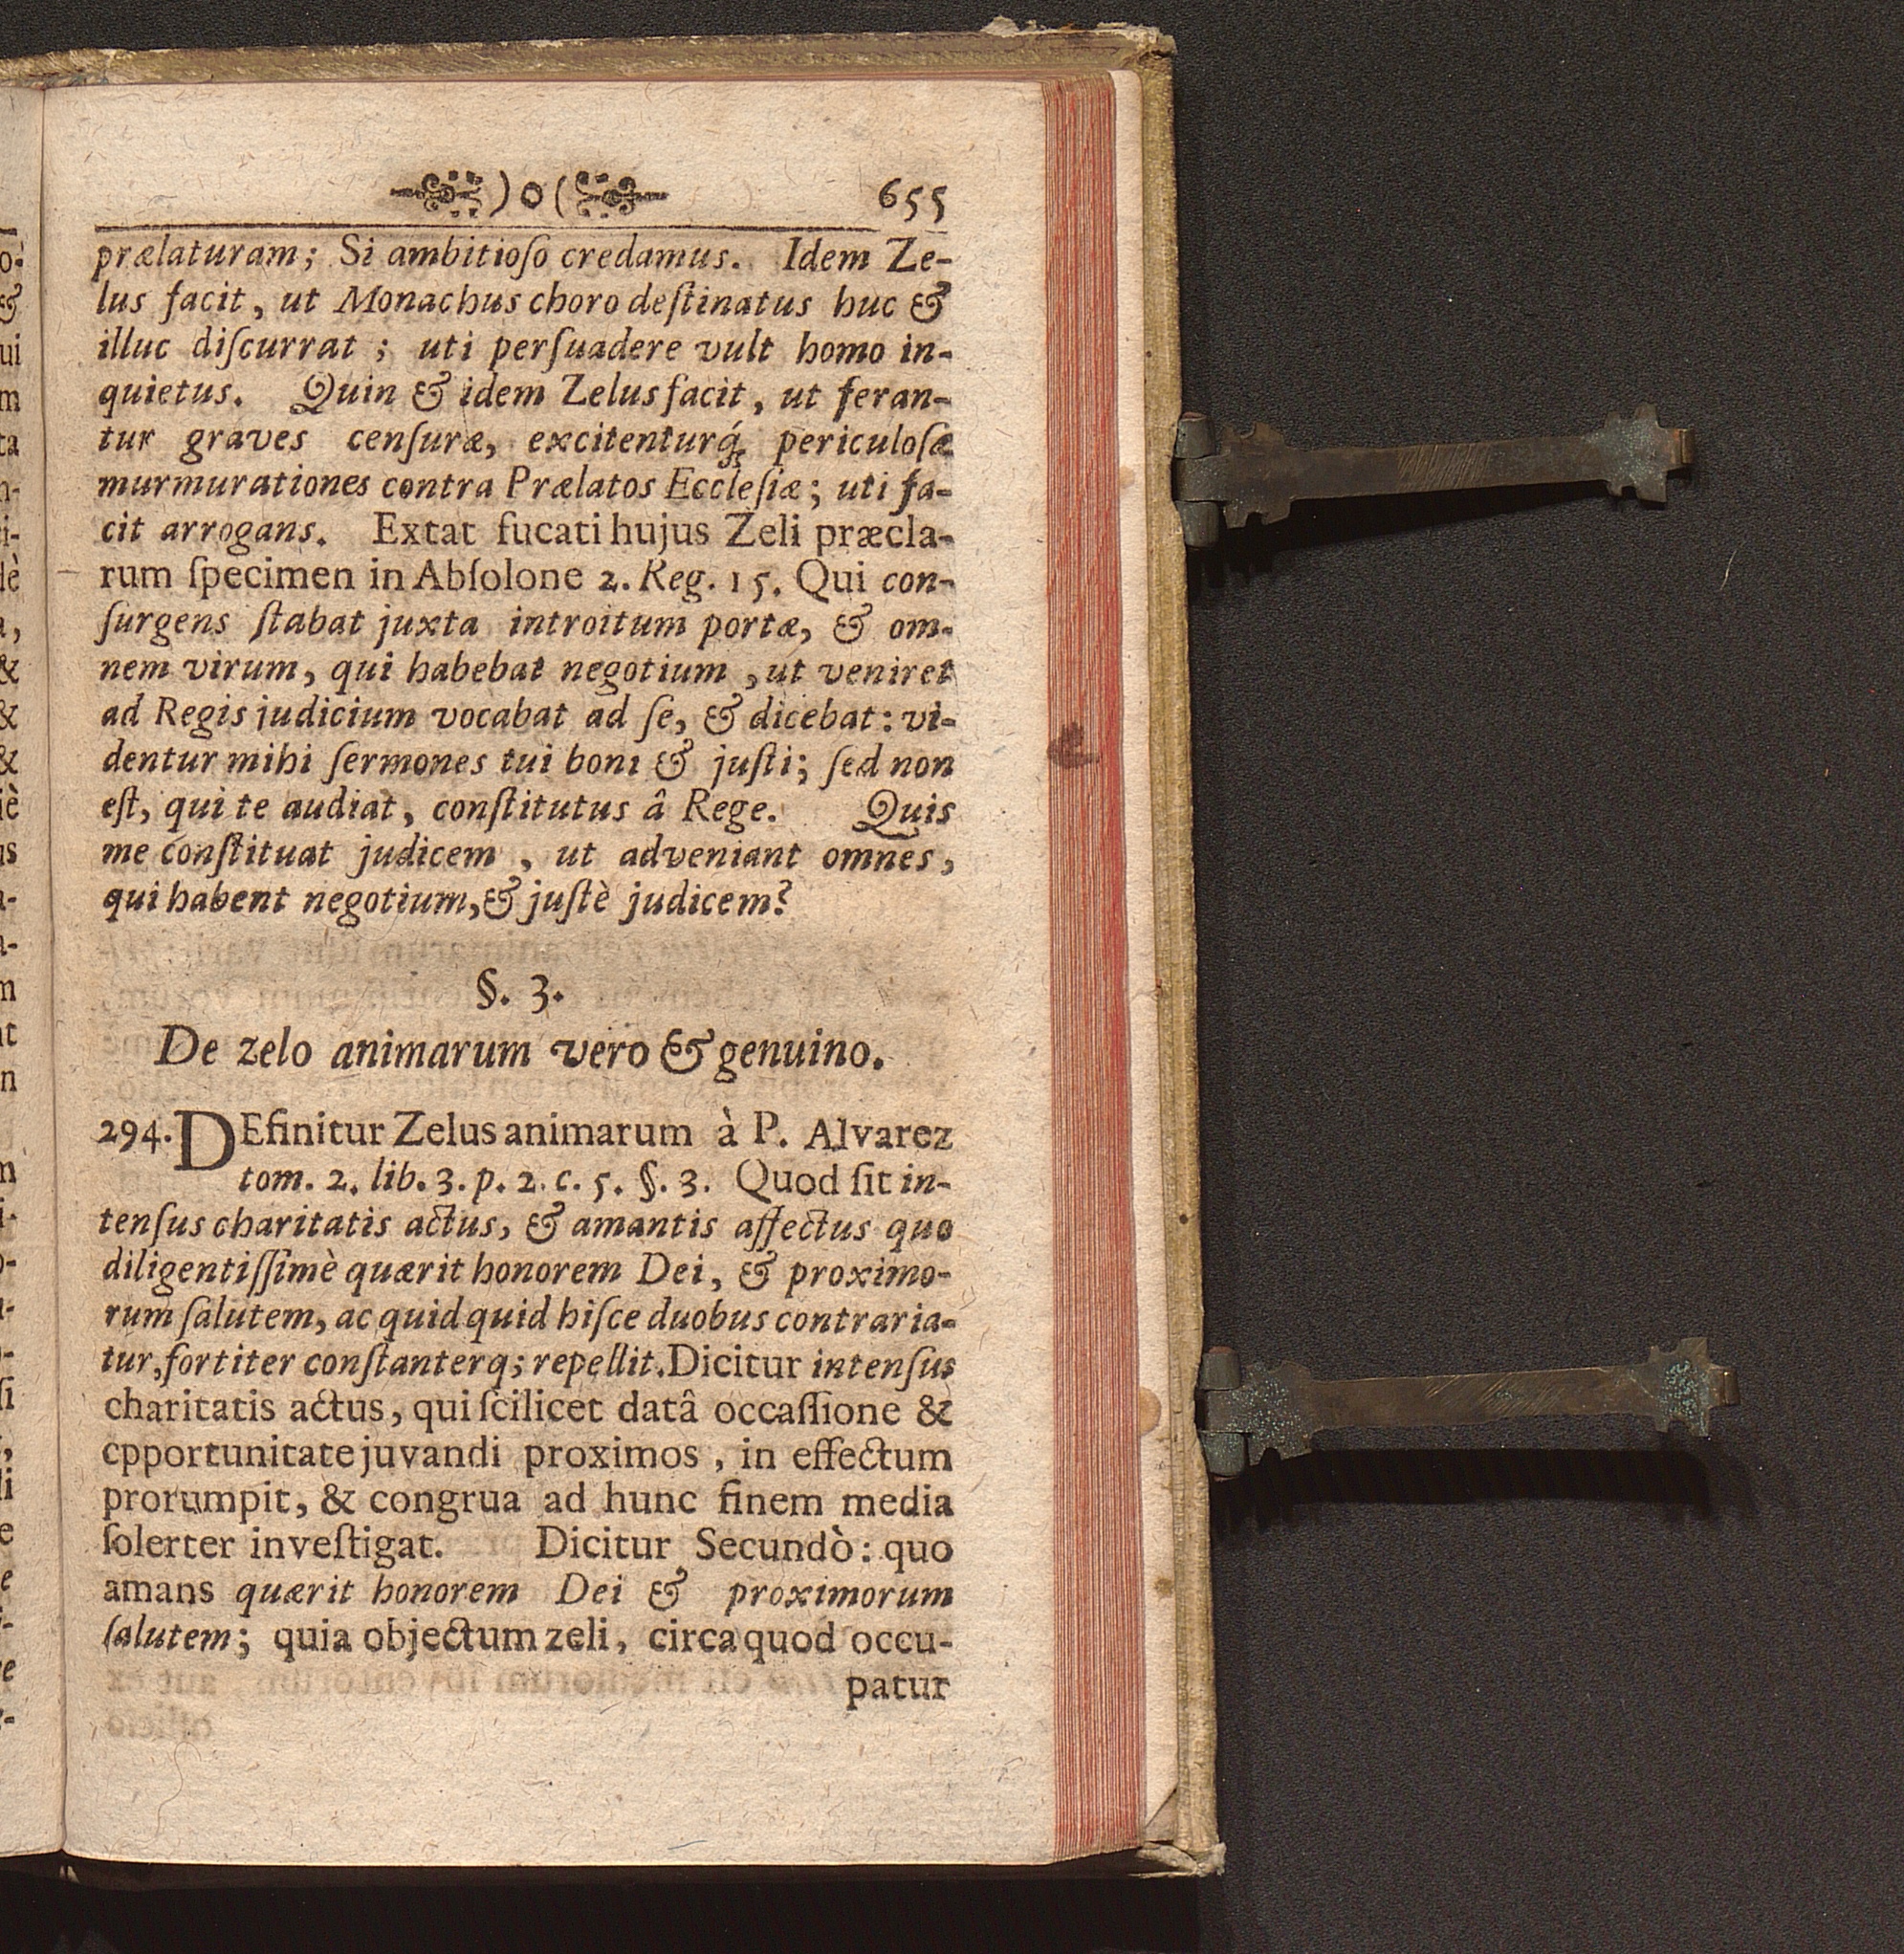 )o( 655
prælaturam; Si ambitioſo credamus. Idem Ze-
lus facit, ut Monachus choro deſtinatus huc &
illuc diſcurrat; uti perſuadere vult homo in-
quietus. Quin & idem Zelus facit, ut feran-
tur graves cenſuræ, excitenturq́; periculoſæ
murmurationes contra Prælatos Eccleſiæ; uti fa-
cit arrogans. Extat fucati hujus Zeli præcla-
rum ſpecimen in Abſolone 2. Reg. 15. Qui con-
ſurgens ſtabat juxta introitum portæ, & om-
nem virum, qui habebat negotium, ut veniret
ad Regis judicium vocabat ad ſe, & dicebat: vi-
dentur mihi ſermones tui boni & juſti; ſed non
eſt, qui te audiat, conſtitutus â Rege. Quis
me conſtituat judicem, ut adveniant omnes,
qui habent negotium, & juſtè judicem?
§. 3.
De zelo animarum vero & genuino.
294. DEfinitur Zelus animarum à P. Alvarez
tom. 2. lib. 3. p. 2. c. 5. §. 3. Quod ſit in-
tenſus charitatis actus, & amantis affectus quo
diligentiſſimè quærit honorem Dei, & proximo-
rum ſalutem, ac quidquid hiſce duobus contraria-
tur, fortiter conſtanterq; repellit. Dicitur intenſus
charitatis actus, qui ſcilicet datâ occaſſione &
cpportunitate juvandi proximos, in effectum
prorumpit, & congrua ad hunc finem media
ſolerter inveſtigat. Dicitur Secundò: quo
amans quærit honorem Dei & proximorum
ſalutem; quia objectum zeli, circa quod occu-
patur